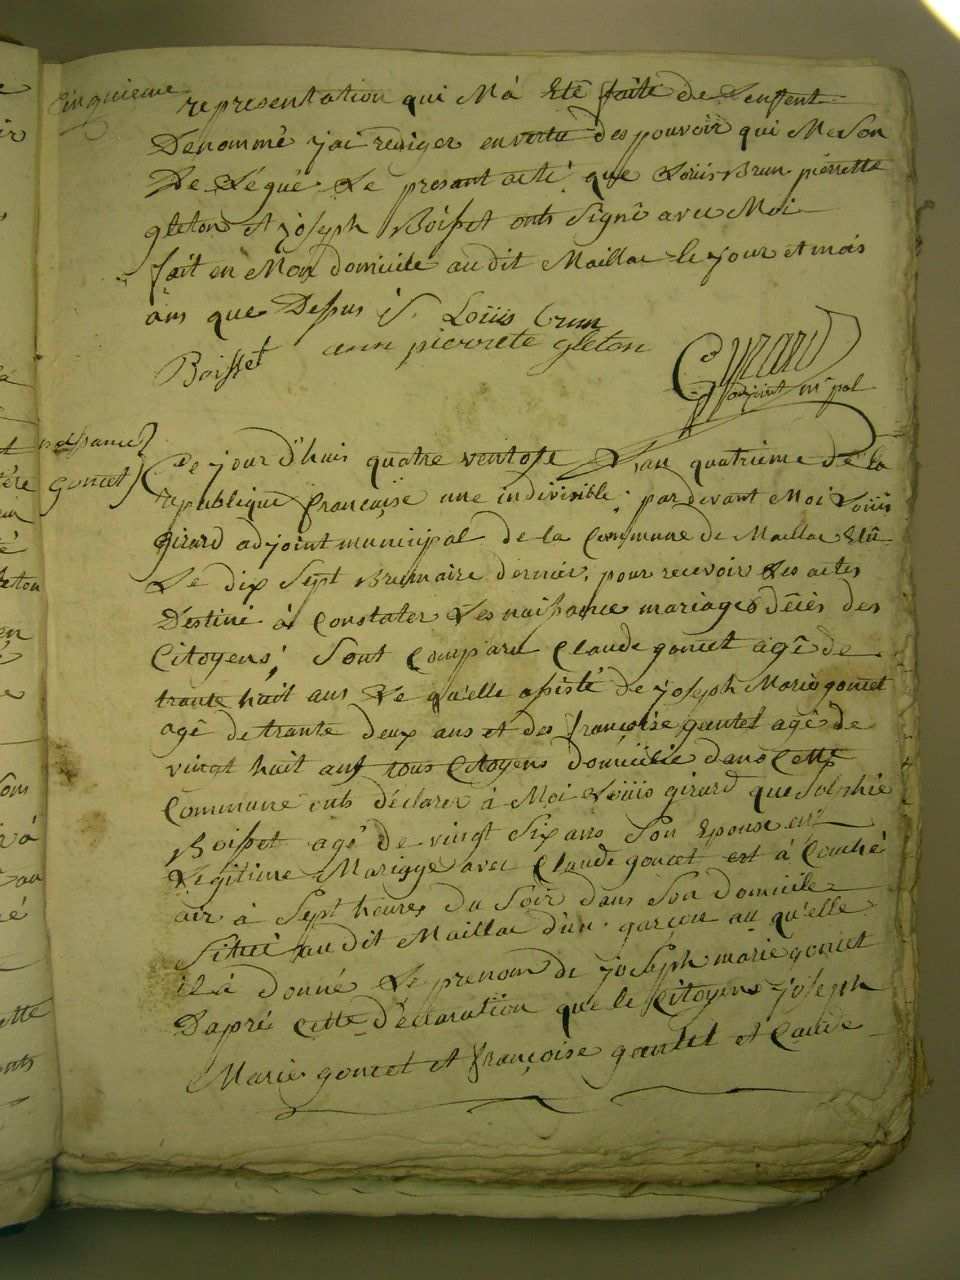 Cinquieme
representation qui M'a Eté faite de L'enffent
Denommé j'ai rediger en vertu des pouvoir qui Me Son
De Légué Le presant acte que Loüis Brun pierrette
gleton et joseph Boisset onts Signé avec Moi
fait en Mon domicile au dit Maillac le jour et mois
ans que Dessus
Loüis brun
ann pierrete gleton
Boisset
Gyrard
adjoint m pal
naissance
goncet
Ce jour d'huis quatre ventose L'an quatrieme de la
republique françaïse une indivisible par devant Moi Loüis
girard adjoint municipal de la Commune de Maillac Elû
Le dix Sept Brumaire dernier, pour recevoir Les actes
Déstiné à Constater Les naissance mariages décès des
Citoyens, Sont Comparu Claude goncet agê de
trante huit ans Le qu'elle assisté de joseph Marie goncet
agê de trante deux ans et des françoise gautet agê de
vingt huit ans tous Citoyens domicilié dans Cette
Commune onts déclarer à Moi Loüis girard que Solphie
Boisset agê de vingt Six ans Son Epouse en
Legitime Mariage avec Claude goncet est à Couché
air à Sept heures du Soir dans Son domicile
Situé au dit Maillac d'un garçon au qu'elle
il à donné Le prenom de joseph marie goncet
D'apré Cette déclaration que le Citoyens joseph
Marie goncet et françoise gautet et Claude